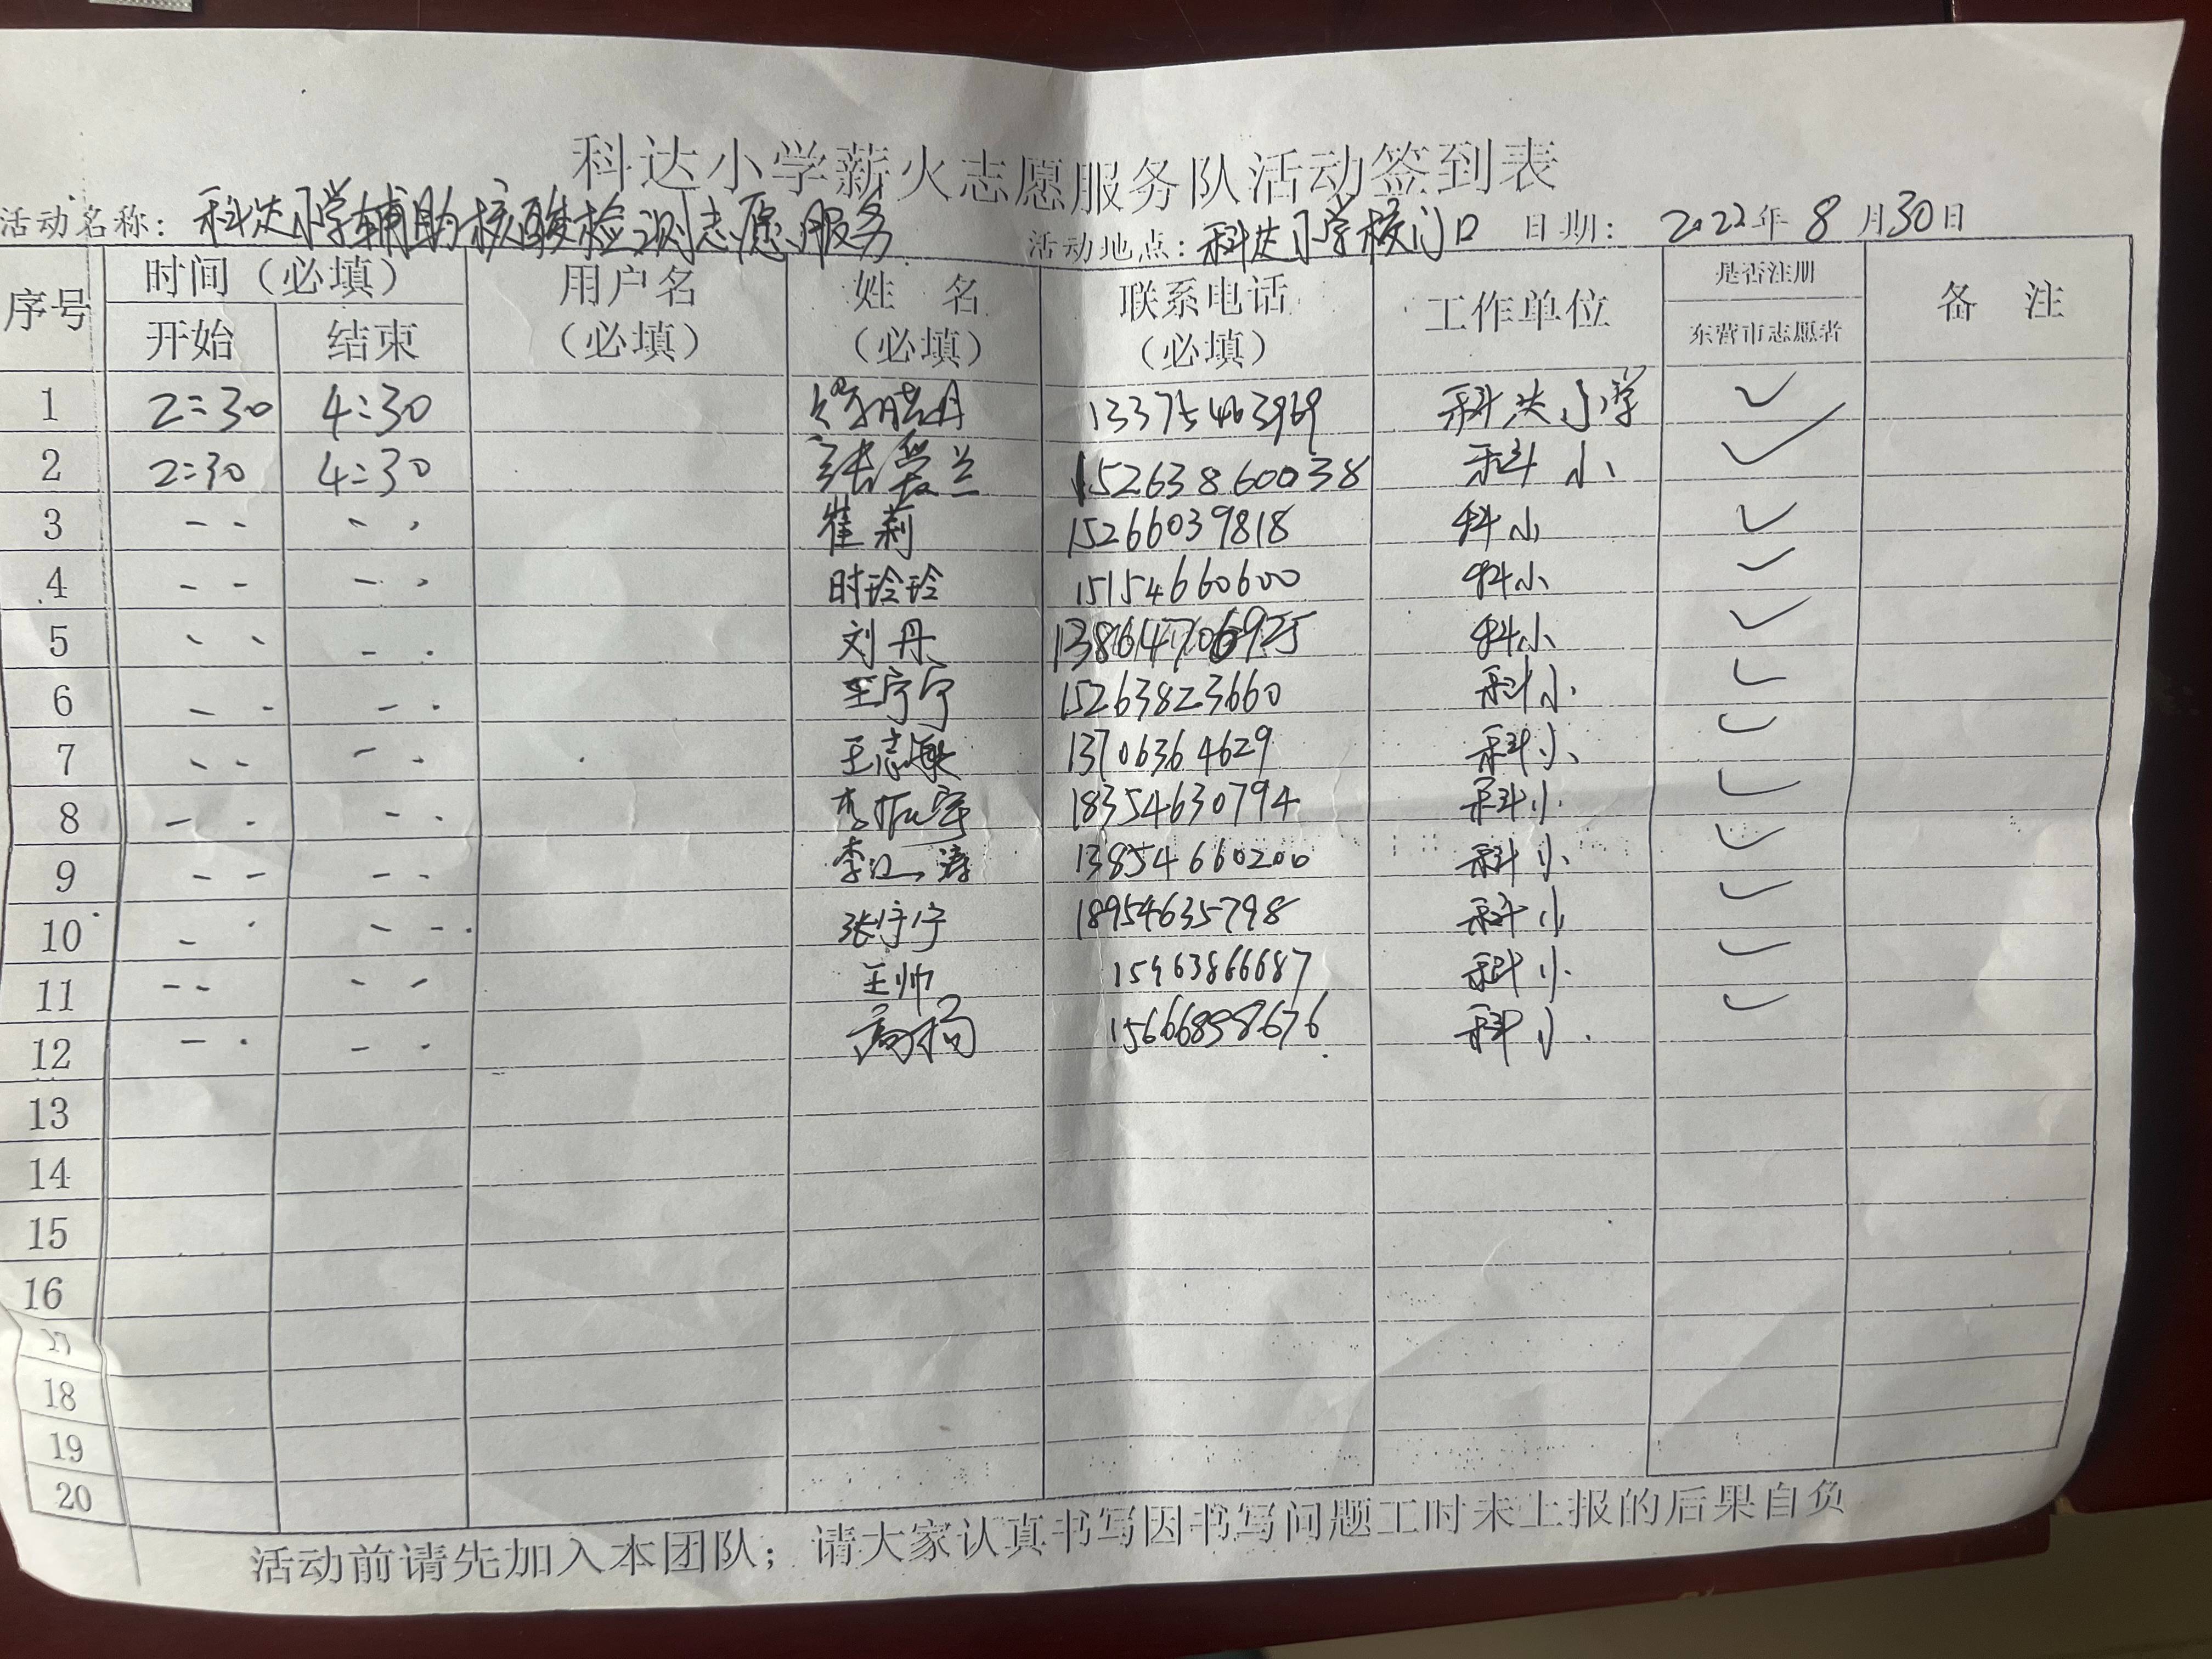 科达小学薪火志愿服务队活动签到表
活动名称：科达小学辅助核酸检测志愿服务 活动地点：科达小学校门口 日期：2022年8月30日
序号 时间（必填） 用户名（必填） 姓 名（必填） 联系电话（必填） 工作单位 是否注册 东营市志愿者 备 注
开始 结束
1 2:30 4:30 13375463969 科达小学 ✓
2 2:30 4:30 张爱兰 15263860038 科小 ✓
3 - - - - 崔莉 15266039818 科小 ✓
4 - - - - 时玲玲 15154660600 科小 ✓
5 - - - - 刘丹 科小 ✓
6 - - - - 王宁宁 15263823660 科小 ✓
7 - - - - 王志敏 13706364629 科小 ✓
8 - - - - 李振宇 18354630794 科小 ✓
9 - - - - 李江涛 13854660200 科小 ✓
10 - - - - 张宁宁 18954635798 科小 ✓
11 - - - - 王帅 15963866687 科小 ✓
12 - - - - 高杨 15666898676 科小 ✓
13
14
15
16
17
18
19
20
活动前请先加入本团队；请大家认真书写因书写问题工时未上报的后果自负